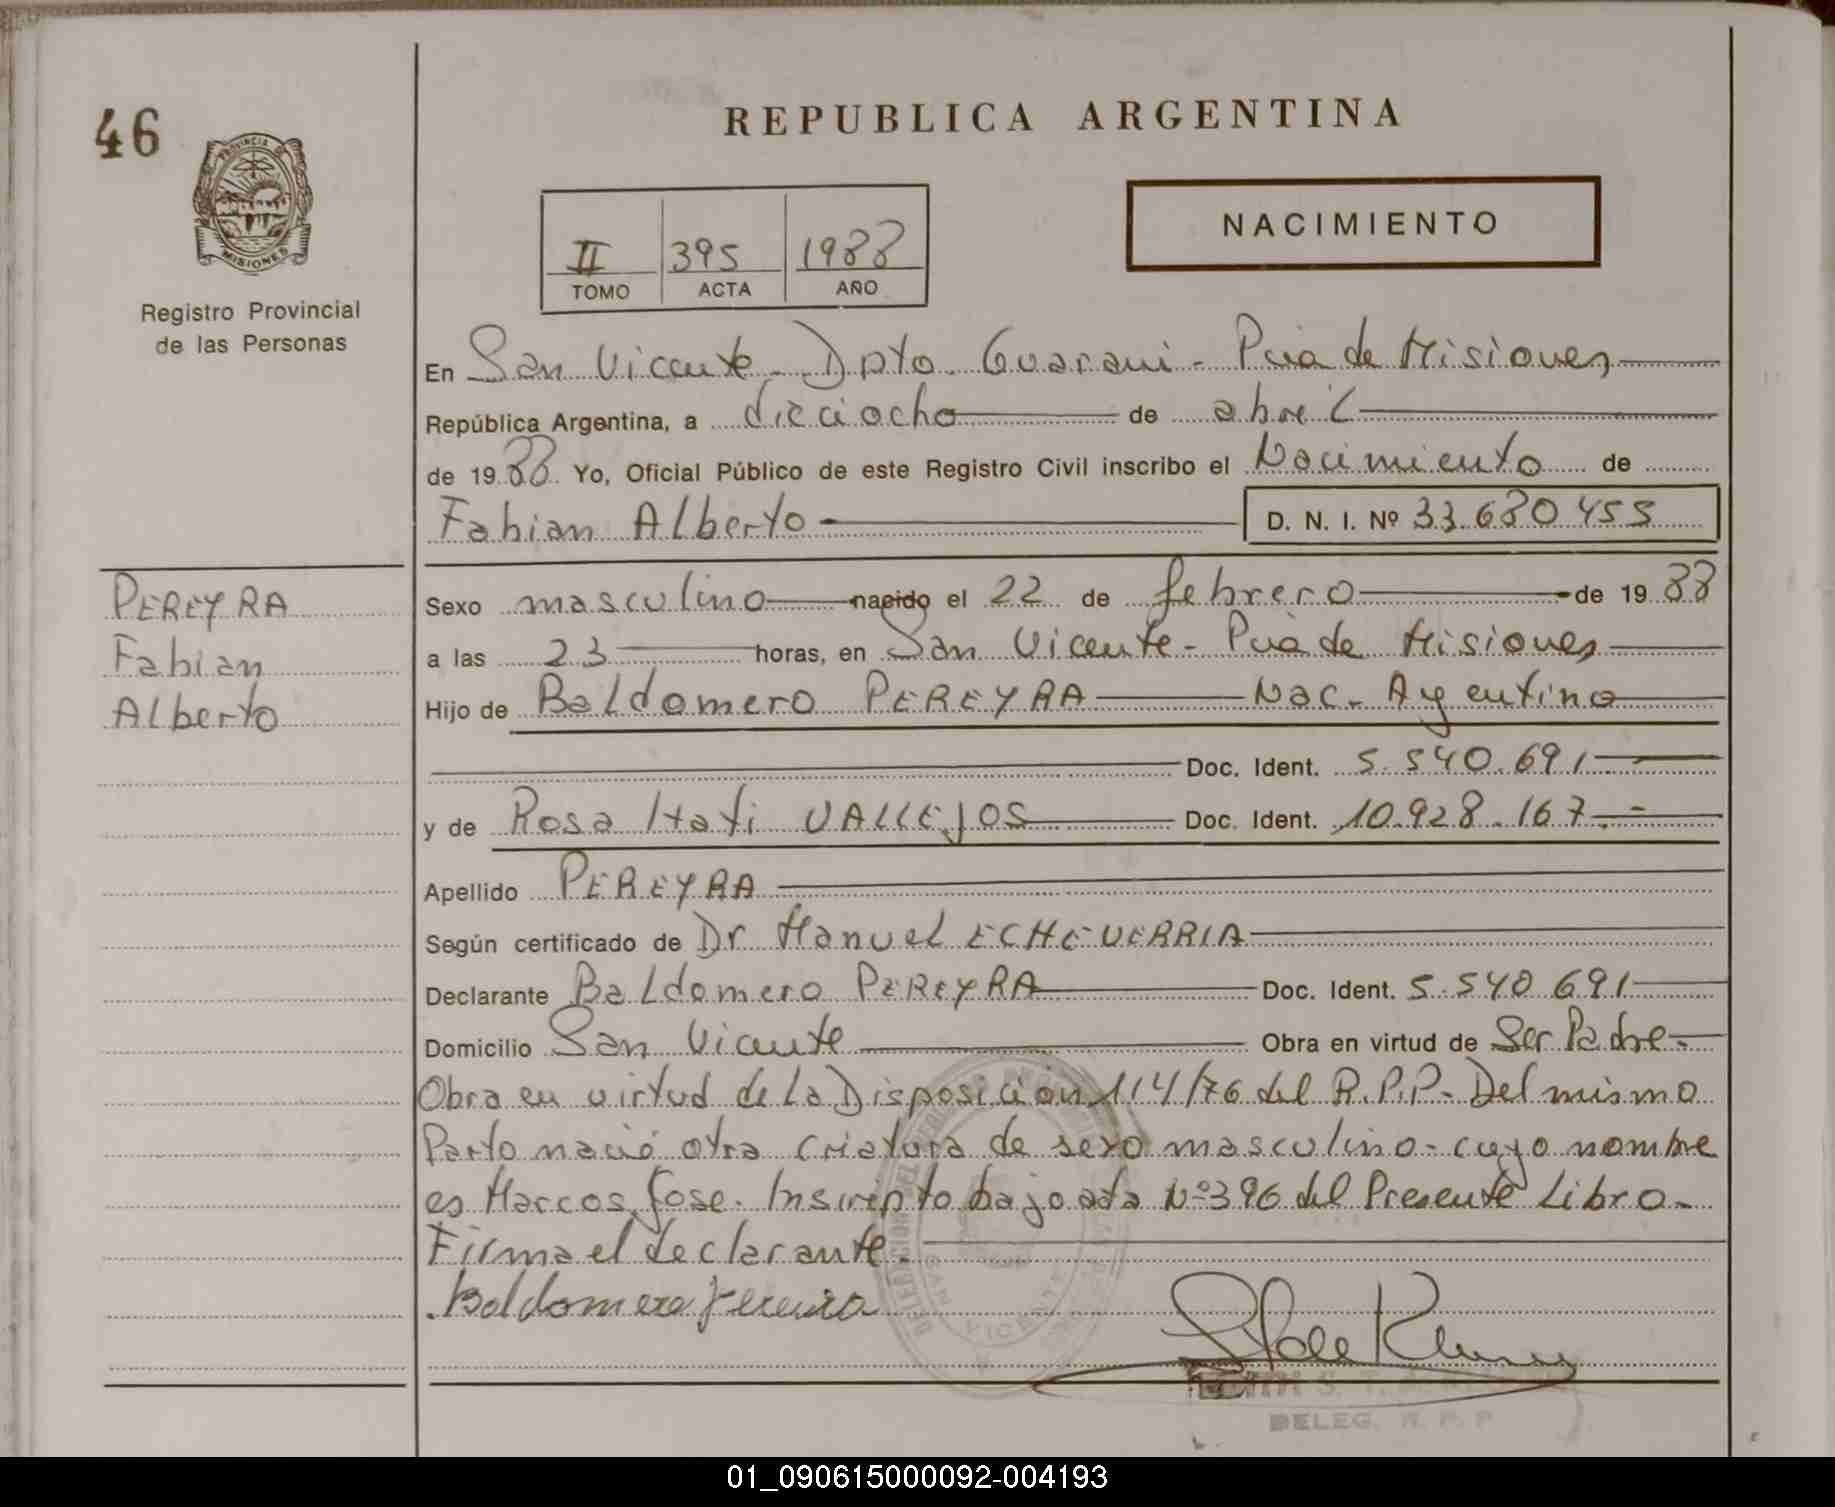 46
PROVINCIA DE
MISIONES
Registro Provincial
de las Personas
REPUBLICA ARGENTINA
II 395 1988
TOMO ACTA AÑO
NACIMIENTO
En San Vicente Dpto. Guarani - Pcia de Misiones
República Argentina, a dieciocho de abril
de 1988 Yo, Oficial Público de este Registro Civil inscribo el Nacimiento de
Fabian Alberto D. N. I. Nº 33.680.455
PEREYRA
Fabian
Alberto
Sexo masculino nacido el 22 de febrero de 1988
a las 23 horas, en San Vicente - Pcia de Misiones
Hijo de Baldomero PEREYRA Nac. Argentino
Doc. Ident. 5.540.691
y de Rosa Itati VALLEJOS Doc. Ident. 10.928.167.-
Apellido PEREYRA
Según certificado de Dr Manuel ECHEVERRIA
Declarante Baldomero PEREYRA Doc. Ident. 5.540.691
Domicilio San Vicente Obra en virtud de Ser Padre.-
Obra en virtud de la Disposición 114/76 del R.P.P- Del mismo
Parto nació otra criatura de sexo masculino - cuyo nombre
es Marcos Jose. Inscripto bajo acta Nº 396 del Presente Libro.-
Firma el declarante.
Baldomero Pereira
VICENTE
DELEG. R. P. P
01_090615000092-004193